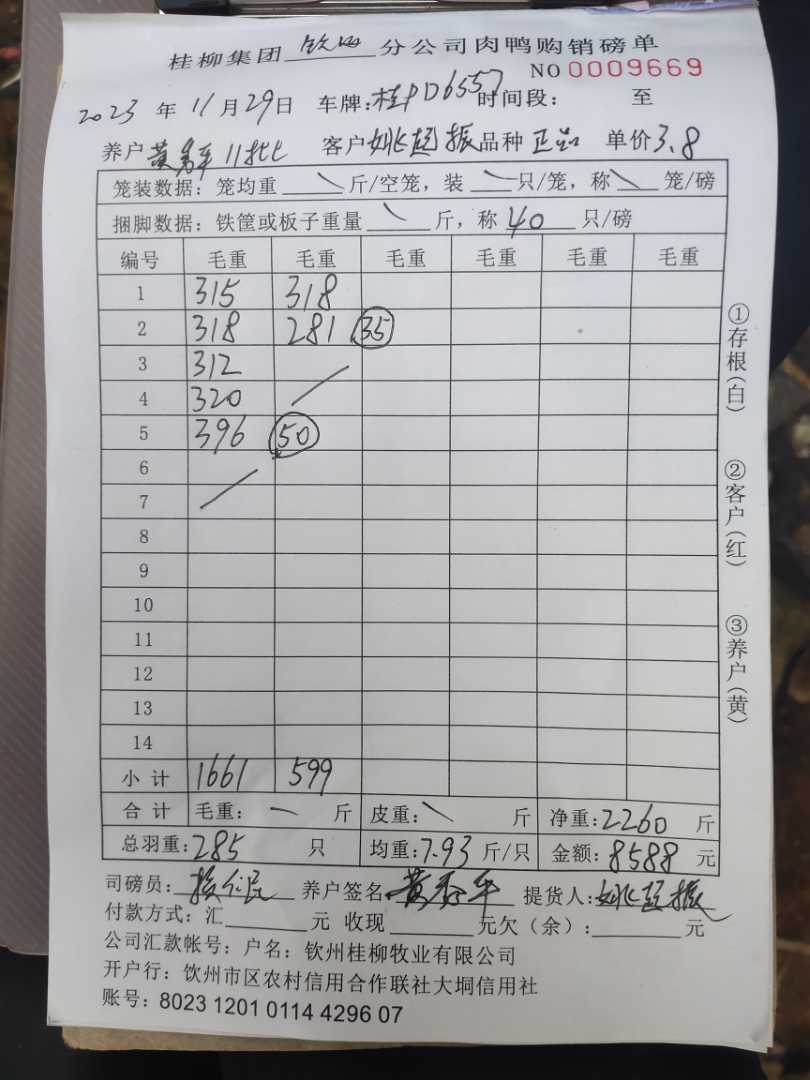 桂柳集团 钦州 分公司肉鸭购销磅单
NO 0009669
2023 年 11 月 29 日 车牌:桂PD6557 时间段: 至
养户 黄 平 11批 客户 姚 振 品种 正品 单价 3.8
笼装数据:笼均重 \ 斤/空笼,装 \ 只/笼,称 \ 笼/磅
捆脚数据:铁筐或板子重量 \ 斤,称 40 只/磅
编号 毛重 毛重 毛重 毛重 毛重 毛重
1 315 318
2 318 281 35
3 312
4 320
5 396 50
6
7
8
9
10
11
12
13
14
小计 1661 599
合计 毛重: 一 斤 皮重: \ 斤 净重:2260 斤
总羽重:285 只 均重:7.93 斤/只 金额:8588 元
司磅员: 养户签名 黄 平 提货人:姚 振
付款方式:汇 元 收现 元欠(余): 元
公司汇款帐号:户名:钦州桂柳牧业有限公司
开户行:钦州市区农村信用合作联社大垌信用社
账号:8023 1201 0114 4296 07
①存根(白)
②客户(红)
③养户(黄)